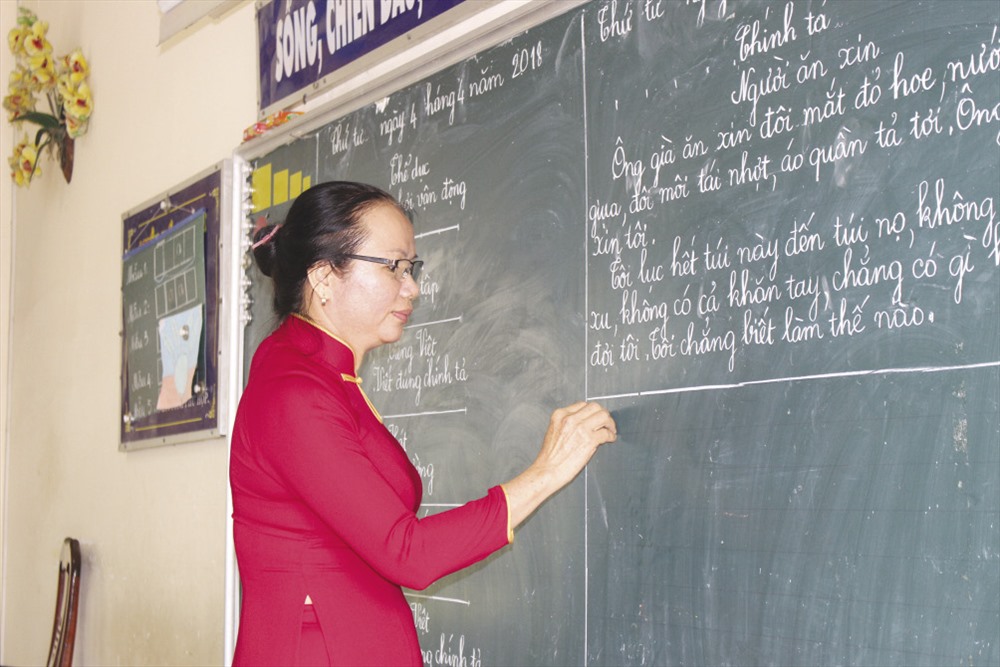 SỐNG, CHIẾN ĐẤU,
Thứ tư ngày 4 tháng 4 năm 2018
Thể dục
vận động
tập
Tiếng Việt
Viết đúng chính tả
chính tả
Thứ tư
Chính tả
Người ăn xin
Ông già ăn xin đôi mắt đỏ hoe, nướ
giụa, đôi môi tái nhợt, áo quần tả tơi. Ông
xin tôi.
Tôi lục hết túi này đến túi nọ, không
xu, không có cả khăn tay, chẳng có gì
đợi tôi. Tôi chẳng biết làm thế nào.